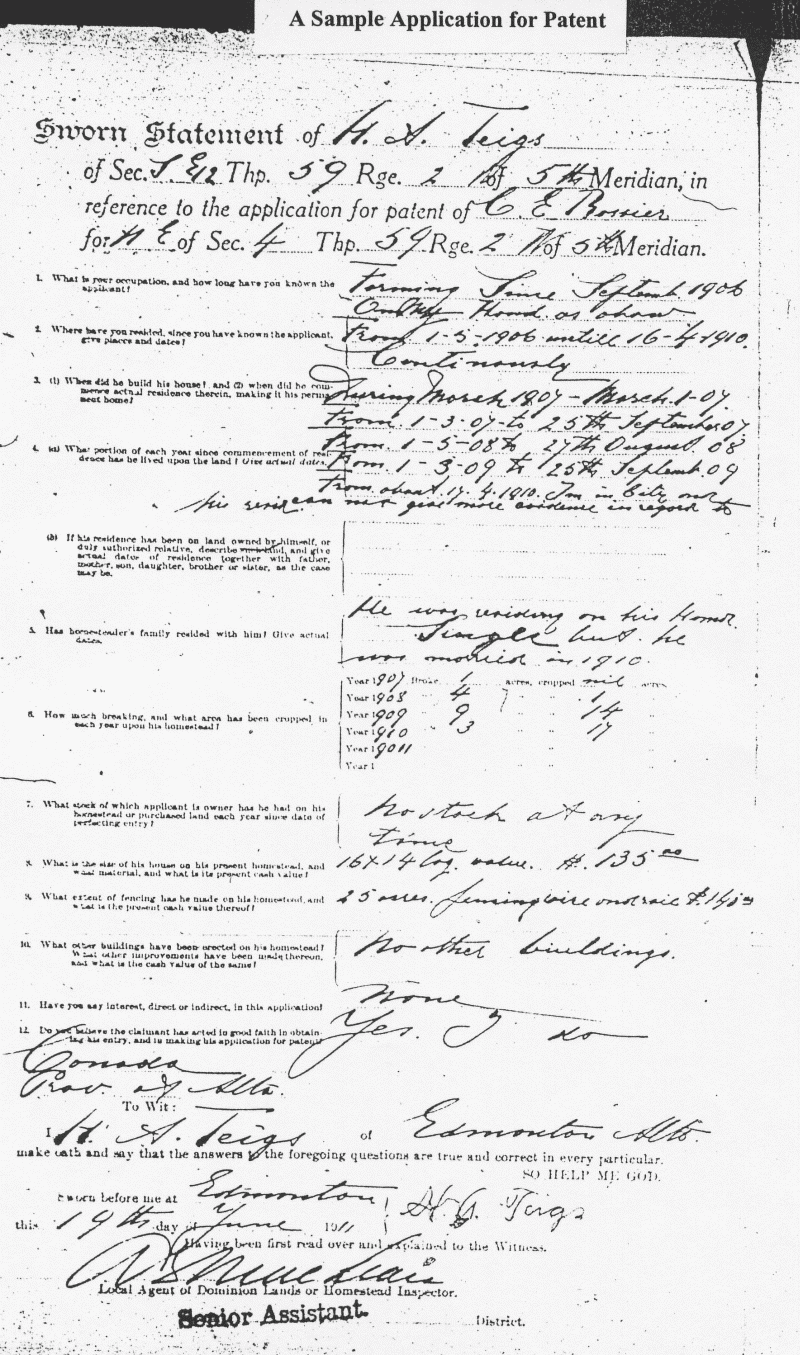 A Sample Application for Patent
Sworn Statement of H. A. Teigs
of Sec. S. E 12 Thp. 59 Rge. 2 of 5th Meridian, in
reference to the application for patent of C. E. Rossier
for N E of Sec. 4 Thp. 59 Rge. 2 of 5th Meridian.
1. What is your occupation, and how long have you known the applicant?
Farming Since Septemb. 1906
2. Where have you resided, since you have known the applicant, give places and dates?
On My Homd. as above
From 1-5-1906 untill 16-4-1910.
Continously
3. (1) When did he build his house? and (2) when did he commence actual residence therein, making it his permanent home?
During March 1907 - March. 1-07.
4. (a) What portion of each year since commencement of residence has he lived upon the land? Give actual dates.
From 1-3-07 to 25th September 07
From. 1-5-08 to 27th August. 08
From. 1-3-09 to 25th Septemb. 09
From about 17.4.1910. I'm in City and
can not give more evidence in regard to
his
(b) If his residence has been on land owned by himself, or
duly authorized relative, describe land, and give
actual dates of residence together with father,
mother, son, daughter, brother or sister, as the case
may be.
5. Has homesteader's family resided with him? Give actual dates.
He was residing on his Homd.
Single but he
was married in 1910.
6. How much breaking, and what area has been cropped in each year upon his homestead?
Year 1907 Broke 1 acres, cropped nil acres
Year 1908 " 4 " " 1 "
Year 1909 " 9 " " 14 "
Year 1910 " 3 " " 17 "
Year 19011 " " " "
Year 1
7. What stock of which applicant is owner has he had on his homestead or purchased land each year since date of perfecting entry?
No stock at any
time
8. What is the size of his house on his present homestead, and what material, and what is its present cash value?
16x14 log. value. $. 135.00
9. What extent of fencing has he made on his homestead, and what is the present cash value thereof?
25 acres. fensing wire and rail
10. What other buildings have been erected on his homestead? What other improvements have been made thereon, and what is the cash value of the same?
No other buildings.
11. Have you any interest, direct or indirect, in this application?
None
12. Do you believe the claimant has acted in good faith in obtaining his entry, and in making his application for patent?
Yes. I do
Canada
Prov. of Alta.
To Wit:
I H. A. Teigs of Edmonton Alta.
make oath and say that the answers to the foregoing questions are true and correct in every particular.
SO HELP ME GOD.
Sworn before me at Edmonton
this 19th day of June 1911
H. A. Teigs
Having been first read over and explained to the Witness.
Local Agent of Dominion Lands or Homestead Inspector.
Senior Assistant
District.